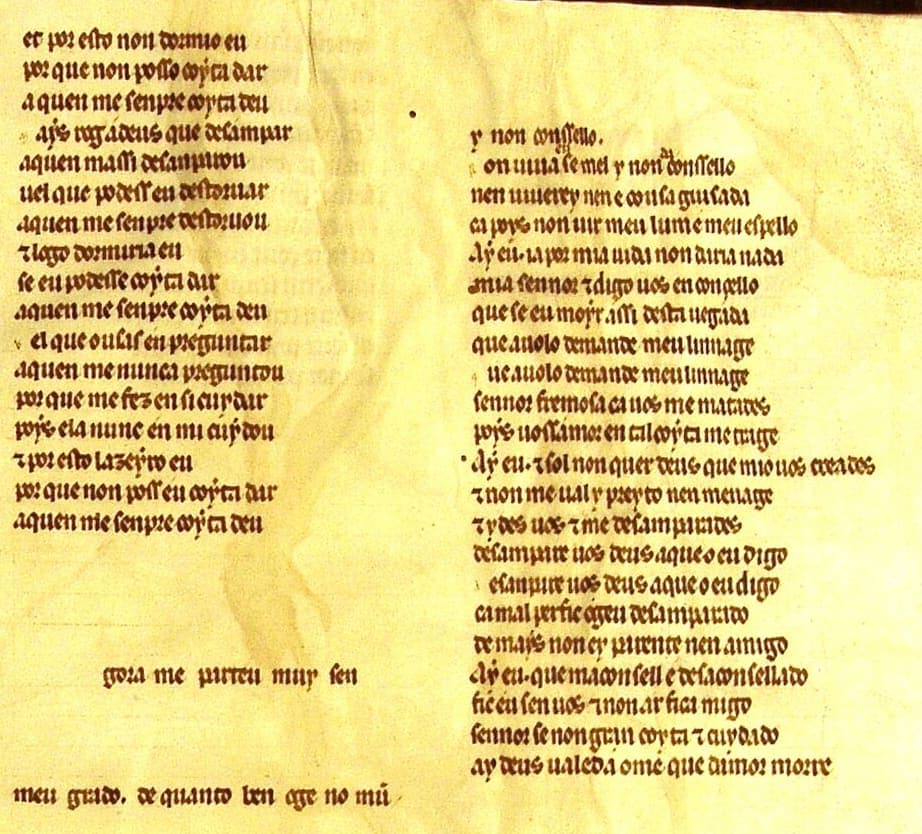 et por esto non dormio eu
por que non posso coyta dar
a quen me senpre coyta deu
ays rogadeus que desampar
aquen massi desamparou
uel que podess eu destoruar
aquen me senpre destoruou
⁊ logo dormiria eu
se eu podesse coyta dar
aquen me senpre coyta deu
el que ousas en preguntar
aquen me nunca preguntou
por que me fez en si cuydar
poys ela nunc en mi cuydou
⁊ por esto lazeyro eu
por que non poss eu coyta dar
aquen me senpre coyta deu
gora me parteu muy sen
meu grado. de quanto ben oge no mũ
y non conssello.
on uiuia se mel y non a conssello
nen uiuerey nen e cousa guisada
ca poys non uir meu lume meu espello
Ay eu. ia por mia uida non daria nada
mia sennor ⁊ digo uos en conçello
que se eu moyr assi desta uegada
que auolo demande meu linnage
ue auolo demande meu linnage
sennor fremosa ca uos me matades
poys uossamor en tal coyta me trage
Ay eu. ⁊ sol non quer deus que mio uos creades
⁊ non me ual y preyto nen menage
⁊ ydes uos ⁊ me desamparades
desampare uos deus aque o eu digo
esanpare uos deus aque o eu digo
ca mal per fic ogeu desamparado
de mays non ey parente nen amigo
Ay eu. que maconsell e desaconsellado
fic eu sen uos ⁊ non ar fica migo
sennor se non gran coyta ⁊ cuydado
ay deus ualed a ome que damor morre